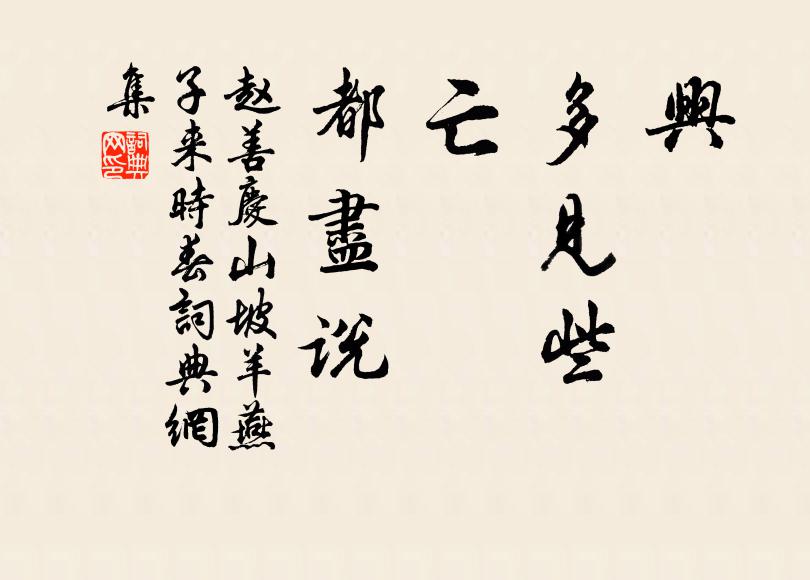 興
多見些
亡
都盡說
赵善慶山坡羊燕
子来時春詞典網
集
詞典
网印